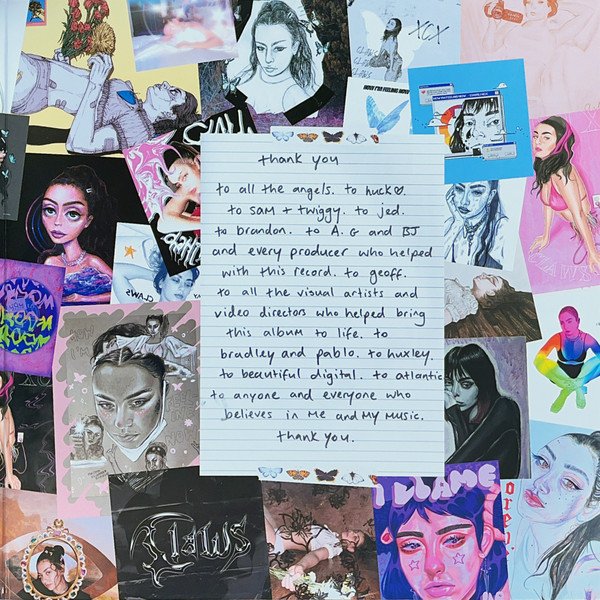 XCX
how i'm feeling now
CLAWS
thank you
to all the angels. to huck♡.
to sam + twiggy. to jed.
to brandon. to A.G and BJ
and every producer who helped
with this record. to geoff.
to all the visual artists and
video directors who helped bring
this album to life. to
bradley and pablo. to huxley.
to beautiful digital. to atlantic
to anyone and everyone who
believes in me and my music.
thank you.
CLAWS
claws
I BLAME